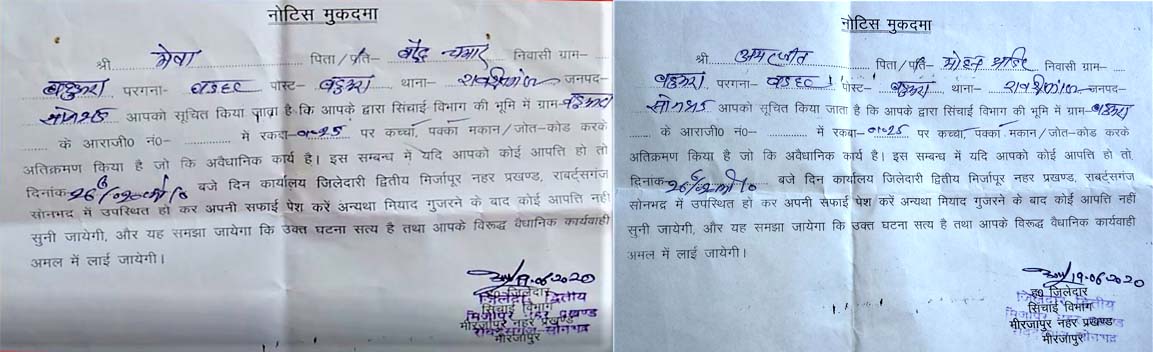 नोटिस मुकदमा
श्री मेवा पिता/पति- निवासी ग्राम-
परगना- पोस्ट- थाना- जनपद-
सोनभद्र आपको सूचित किया जाता है कि आपके द्वारा सिंचाई विभाग की भूमि में ग्राम-
के आराजी0 नं0- में रकबा- पर कच्चा, पक्का मकान/जोत-कोड करके
अतिक्रमण किया है जो कि अवैधानिक कार्य है। इस सम्बन्ध में यदि आपको कोई आपत्ति हो तो
दिनांक बजे दिन कार्यालय जिलेदारी द्वितीय मिर्जापूर नहर प्रखण्ड, राबर्ट्सगंज
सोनभद्र में उपस्थित हो कर अपनी सफाई पेश करें अन्यथा मियाद गुजरने के बाद कोई आपत्ति नही
सुनी जायेगी, और यह समझा जायेगा कि उक्त घटना सत्य है तथा आपके विरूद्ध वैधानिक कार्यवाही
अमल में लाई जायेगी।
19.06.2020
ह0 जिलेदार
जिलेदारी द्वितीय
सिंचाई विभाग
मिर्जापुर नहर प्रखण्ड
मीरजापुर नहर प्रखण्ड
मीरजापुर
नोटिस मुकदमा
श्री अमरजीत पिता/पति- मोहन निवासी ग्राम-
परगना- पोस्ट- थाना- जनपद-
सोनभद्र आपको सूचित किया जाता है कि आपके द्वारा सिंचाई विभाग की भूमि में ग्राम-
के आराजी0 नं0- में रकबा- पर कच्चा, पक्का मकान/जोत-कोड करके
अतिक्रमण किया है जो कि अवैधानिक कार्य है। इस सम्बन्ध में यदि आपको कोई आपत्ति हो तो
दिनांक बजे दिन कार्यालय जिलेदारी द्वितीय मिर्जापूर नहर प्रखण्ड, राबर्ट्सगंज
सोनभद्र में उपस्थित हो कर अपनी सफाई पेश करें अन्यथा मियाद गुजरने के बाद कोई आपत्ति नही
सुनी जायेगी, और यह समझा जायेगा कि उक्त घटना सत्य है तथा आपके विरूद्ध वैधानिक कार्यवाही
अमल में लाई जायेगी।
19.06.2020
ह0 जिलेदार
जिलेदारी द्वितीय
सिंचाई विभाग
मीरजापुर नहर प्रखण्ड
मीरजापुर